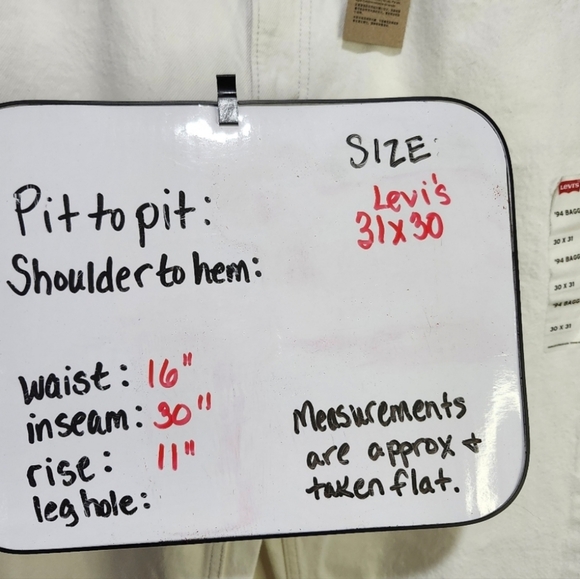 SIZE
Levi's
31x30
Pit to pit:
Shoulder to hem:
waist: 16"
inseam: 30"
rise: 11"
leg hole:
Measurements
are approx +
taken flat.
LEVI'S
'94 BAGG
30 X 31
'94 BAGG
30 X 31
'94 BAGG
30 X 31